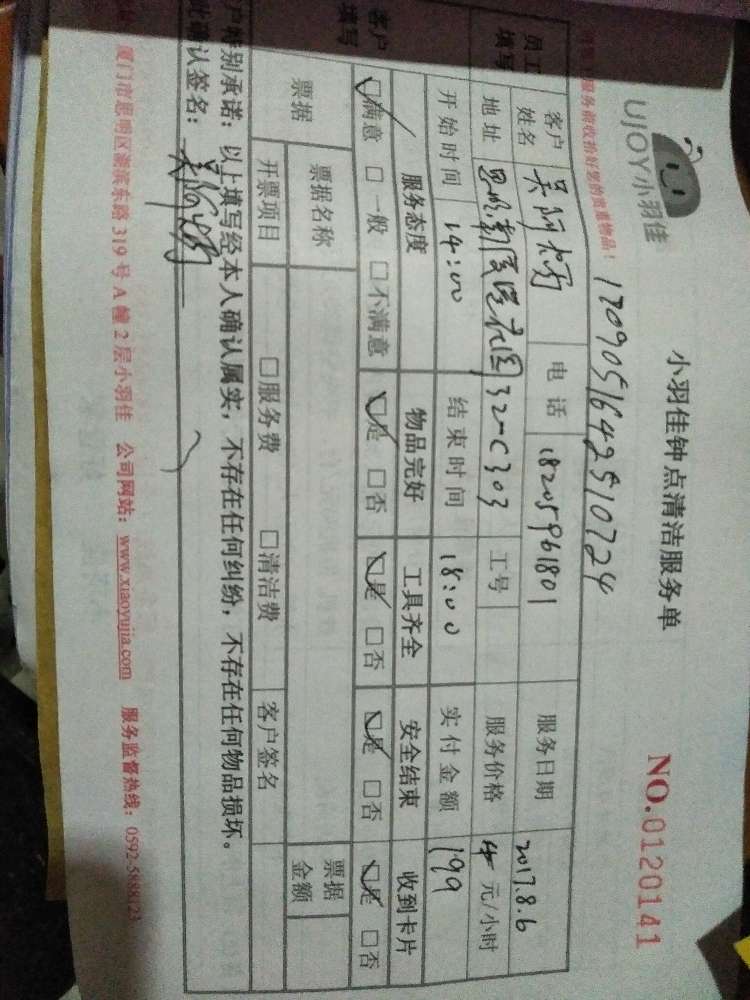 UJOY小羽佳
小羽佳钟点清洁服务单
NO.0120141
服务前收拾好您的贵重物品！
1709051642510724
员工填写
客户姓名 吴阿 电话 18205961801 服务日期 2017.8.6
地址 32-C303 工号 服务价格 元/小时
开始时间 14:00 结束时间 18:00 实付金额 199
客户填写
服务态度 物品完好 工具齐全 安全结束 收到卡片
☑满意 □一般 □不满意 ☑是 □否 ☑是 □否 ☑是 □否 ☑是 □否
票据
票据名称 票据金额
开票项目 □服务费 □清洁费 客户签名
户特别承诺：以上填写经本人确认属实，不存在任何纠纷，不存在任何物品损坏。
此确认签名：
厦门市思明区湖滨东路319号A幢2层小羽佳 公司网站：www.xiaoyujia.com 服务监督热线：0592-5888123